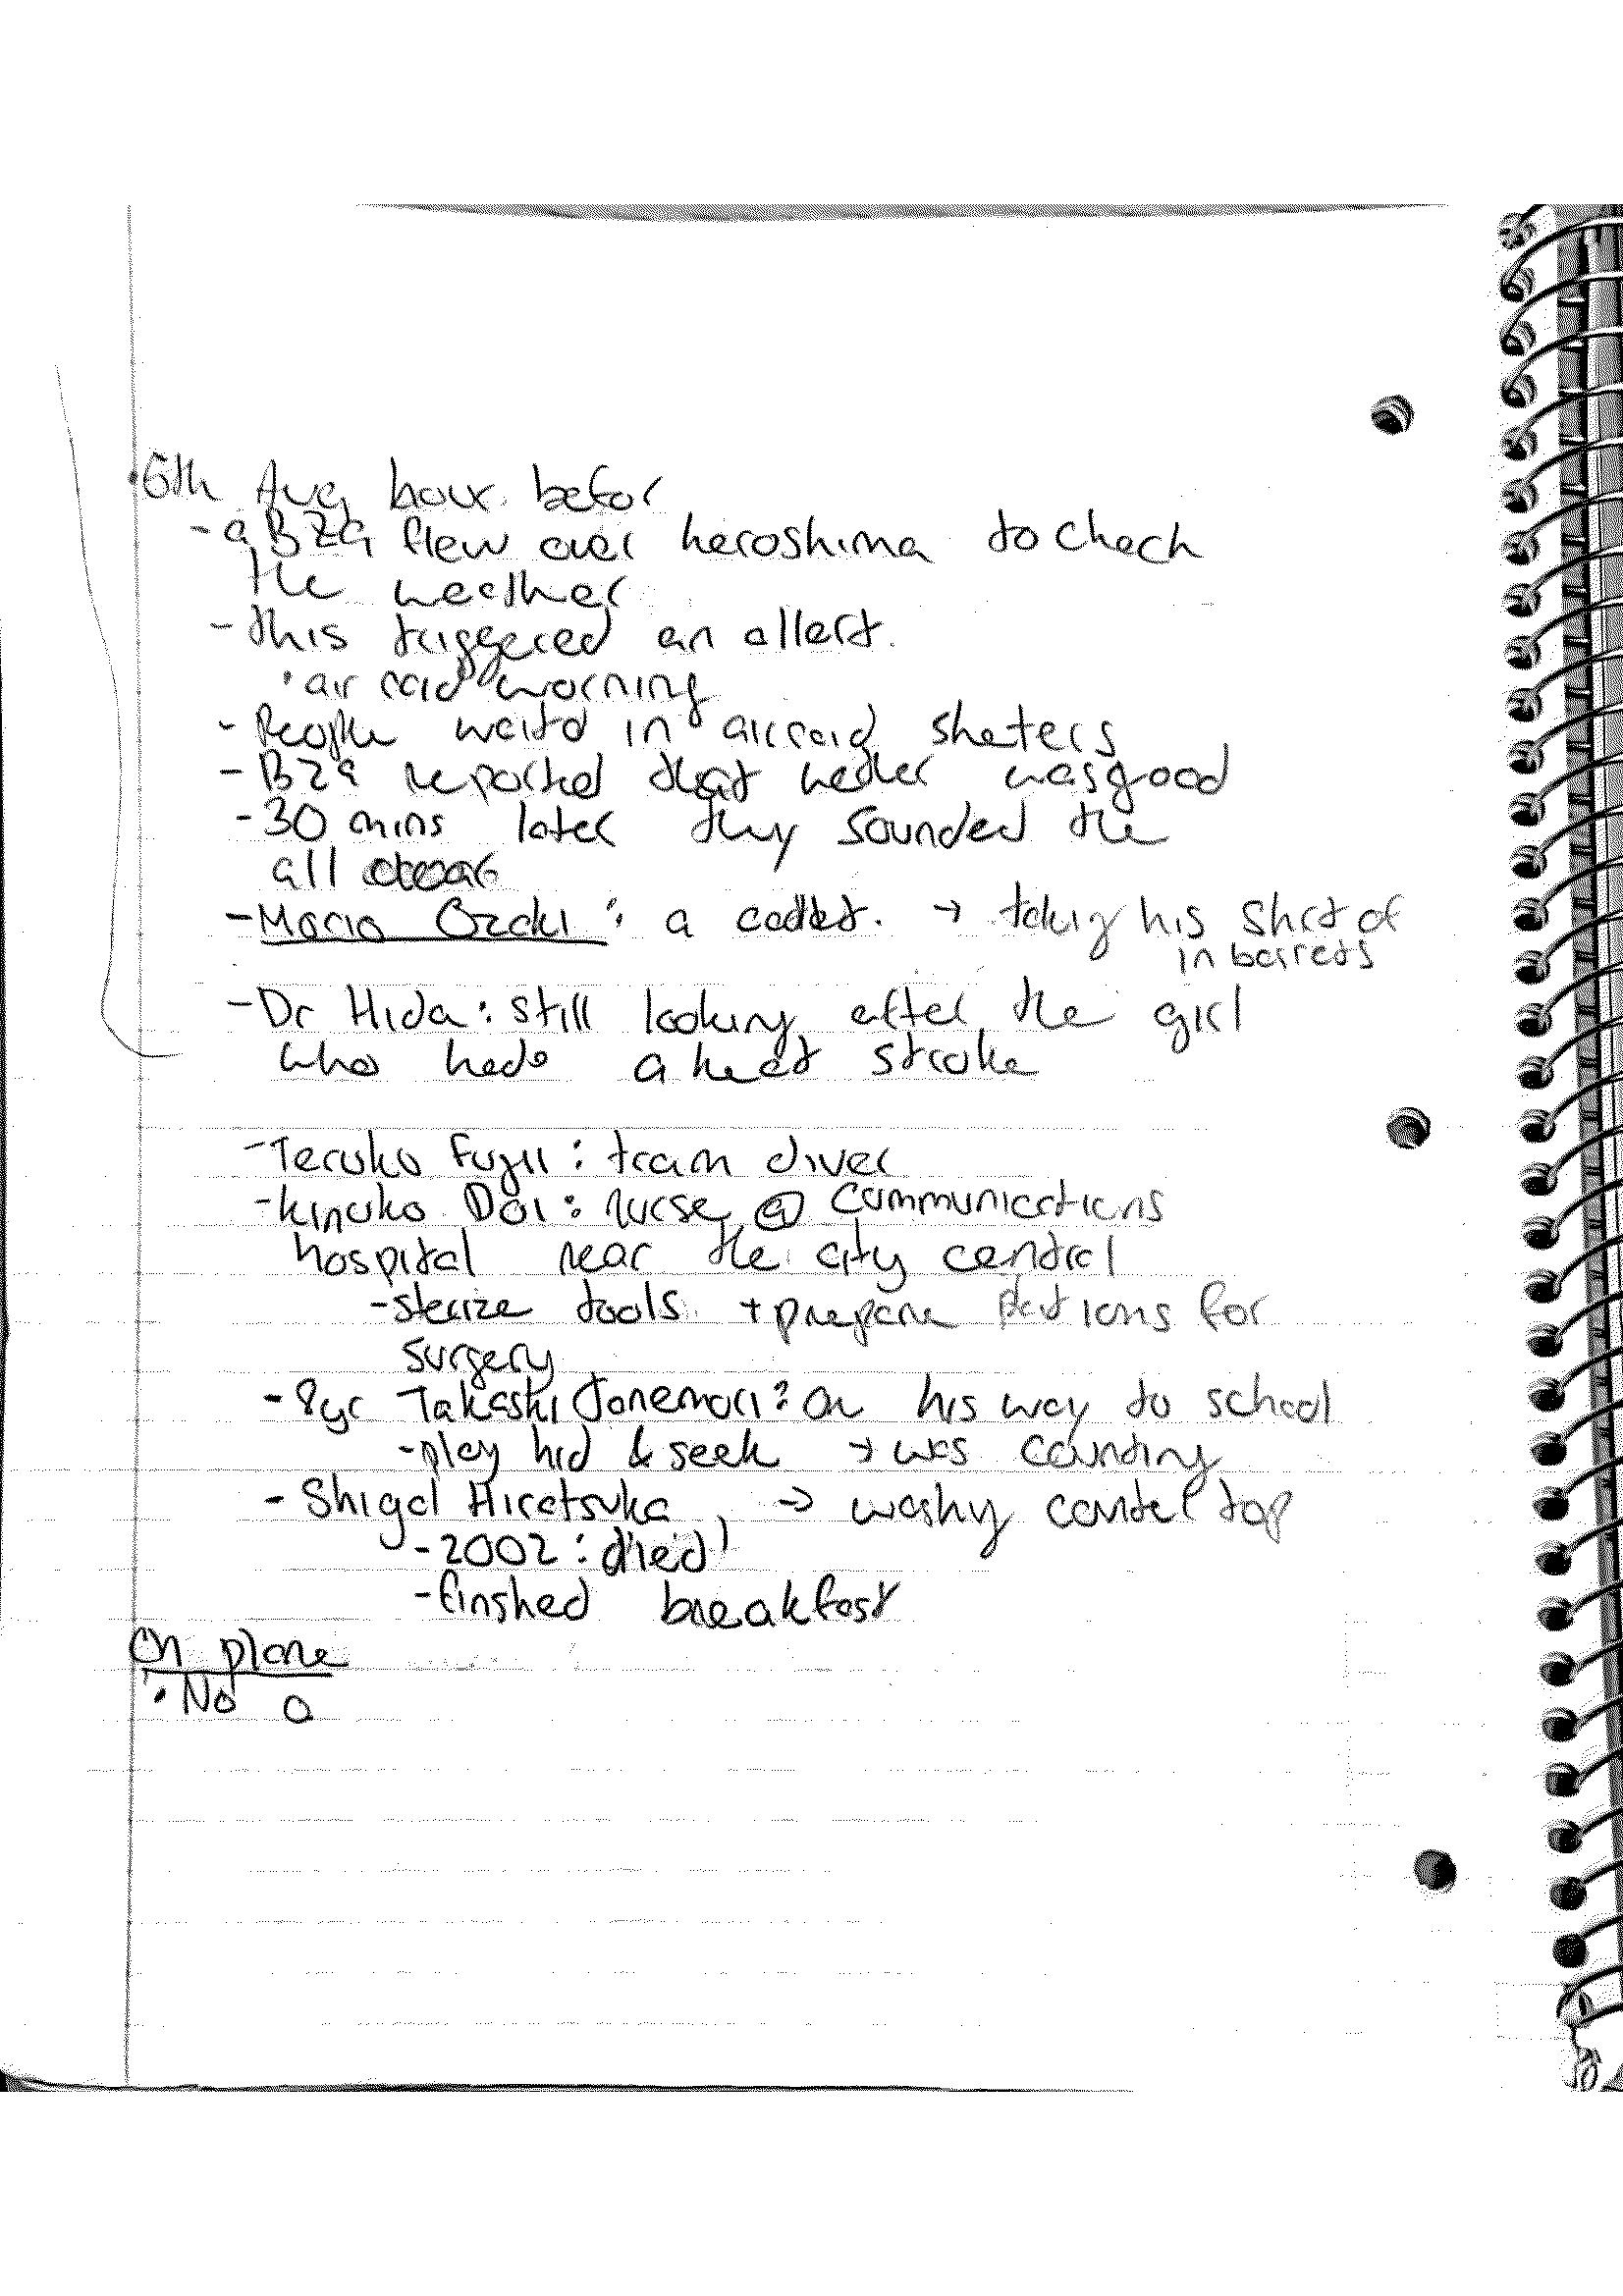 • 6th Aug hour befor
- a B29 flew over heroshima to check
the weather
- this triggered an allert.
• air raid warning
- People waitd in airraid shelters
- B29 reported that wether was good
- 30 mins later they sounded the
all clear
- Mario Ozaki : a cadet. → taking his shirt of
in barreds
- Dr Hida : still looking after the girl
who hade a heat stroke
- Teruko Fujii : tram driver
- Kinuko Doi : nurse @ Communications
hospital near the city central
- sterize tools + prepare for
surgery
- 8yr Takashi Tanemori : On his way to school
- play hid & seek → was counting
- Shigal Hiratsuka → washy counter top
- 2002 : died
- finshed breakfast
On plane
• No